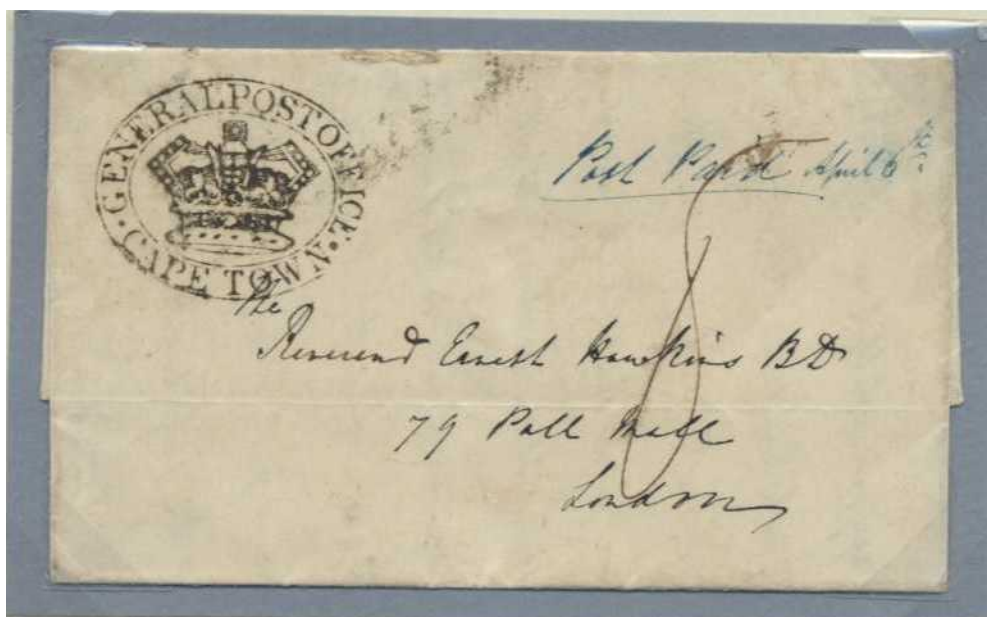 ·GENERAL POST OFFICE·
CAPE TOWN
Post Paid April 6
8
The
Reverend Ernest Hawkins BD
79 Pall Mall
London